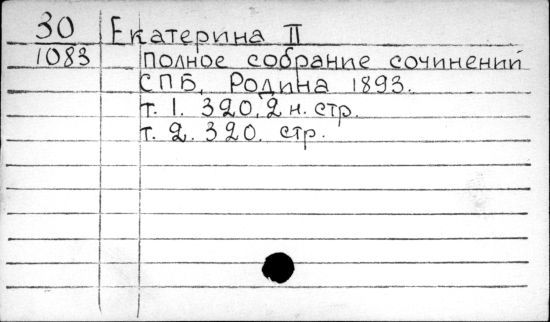 30 Екатерина II
1083 Полное собрание сочинений
СПБ, Родина 1893.
т. 1. 320, 2 н. стр.
т. 2. 320. стр.